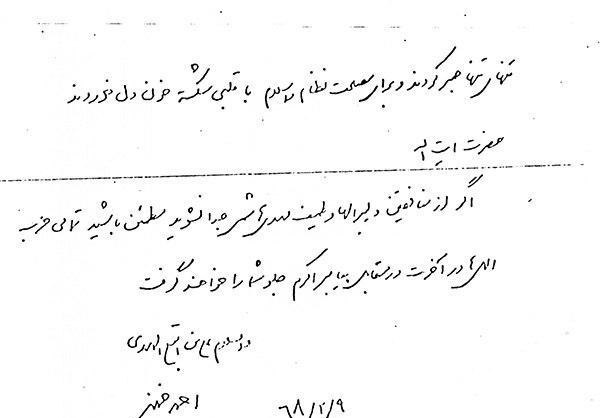 تنهای تنها صبر کردند و برای مصلحت نظام و اسلام با قلبی شکسته خون دل خوردند
حضرت آیت اله
اگر از منافقین و لیبرالها و طیف مهدی هاشمی جدا نشوید مطمئن باشید تمامی حزب
اللهی‌ها در آخرت در مقابل پیامبر اکرم جلو شما را خواهند گرفت
والسلام علی من اتبع الهدی
احمد خمینی
۶۸/۲/۹